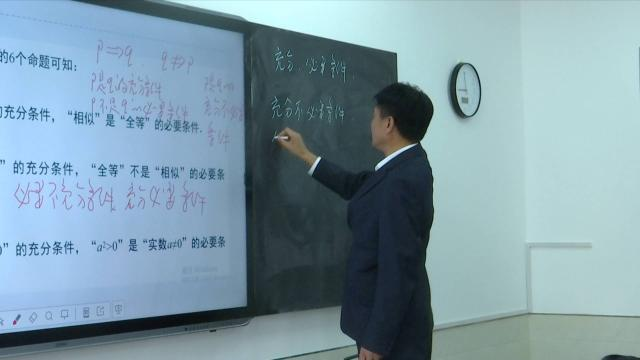 p⇒q , q⇏p
的6个命题可知：
p是q的充分条件
p是q的
p不是q的必要条件
充分不必要
的充分条件，“相似”是“全等”的必要条件.
条件
”的充分条件，“全等”不是“相似”的必要条
必要不充分条件 充分必要条件
0”的充分条件，“a²>0”是“实数a≠0”的必要条
充分、必要条件.
充分不必要条件.